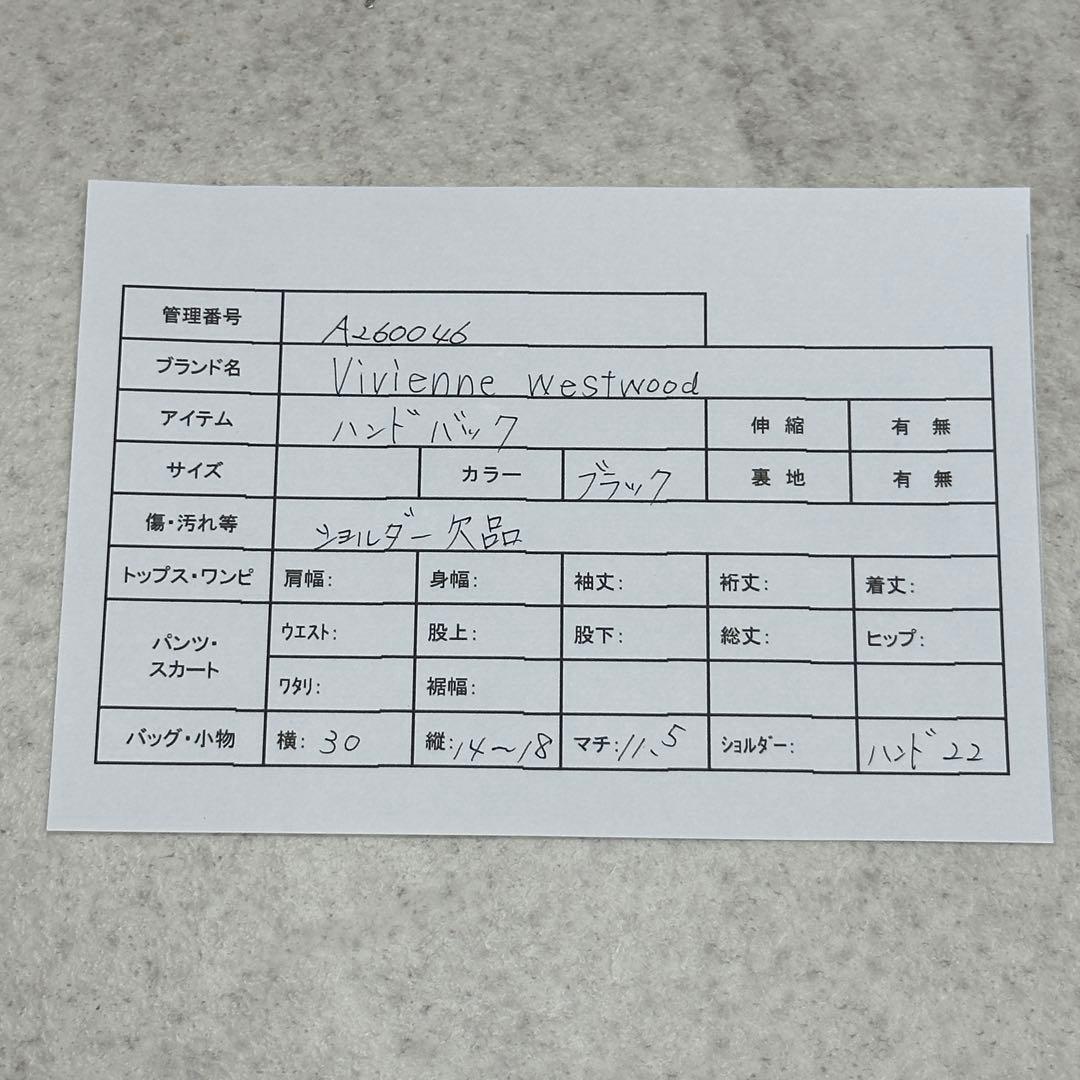 管理番号 A260046
ブランド名 Vivienne Westwood
アイテム ハンドバック 伸縮 有 無
サイズ カラー ブラック 裏地 有 無
傷・汚れ等 ショルダー欠品
トップス・ワンピ 肩幅: 身幅: 袖丈: 裄丈: 着丈:
パンツ・スカート ウエスト: 股上: 股下: 総丈: ヒップ:
ワタリ: 裾幅:
バッグ・小物 横: 30 縦: 14~18 マチ: 11.5 ショルダー: ハンド22